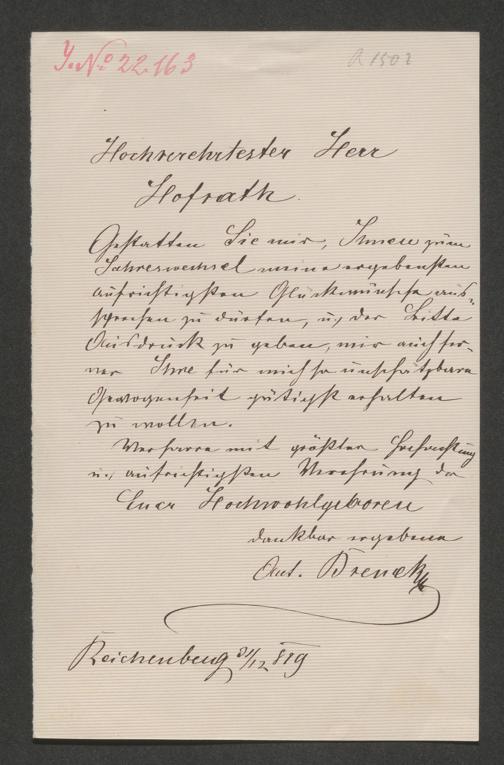 J. No 22.163
A 1502
Hochverehrtester Herr
Hofrath.
Gestatten Sie mir, Ihnen zum
Jahreswechsel meine ergebensten
aufrichtigsten Glückwünsche aus=
sprechen zu dürfen, u. der Bitte
Ausdruck zu geben, mir auch fer-
ner Ihre für mich so unschätzbare
Gewogenheit gütigst erhalten
zu wollen.
Verharre mit größter Hochachtung
u. aufrichtigsten Verehrung da
Euer Hochwohlgeboren
dankbar ergebene
Ant. Brenek
Reichenberg 31/12 889